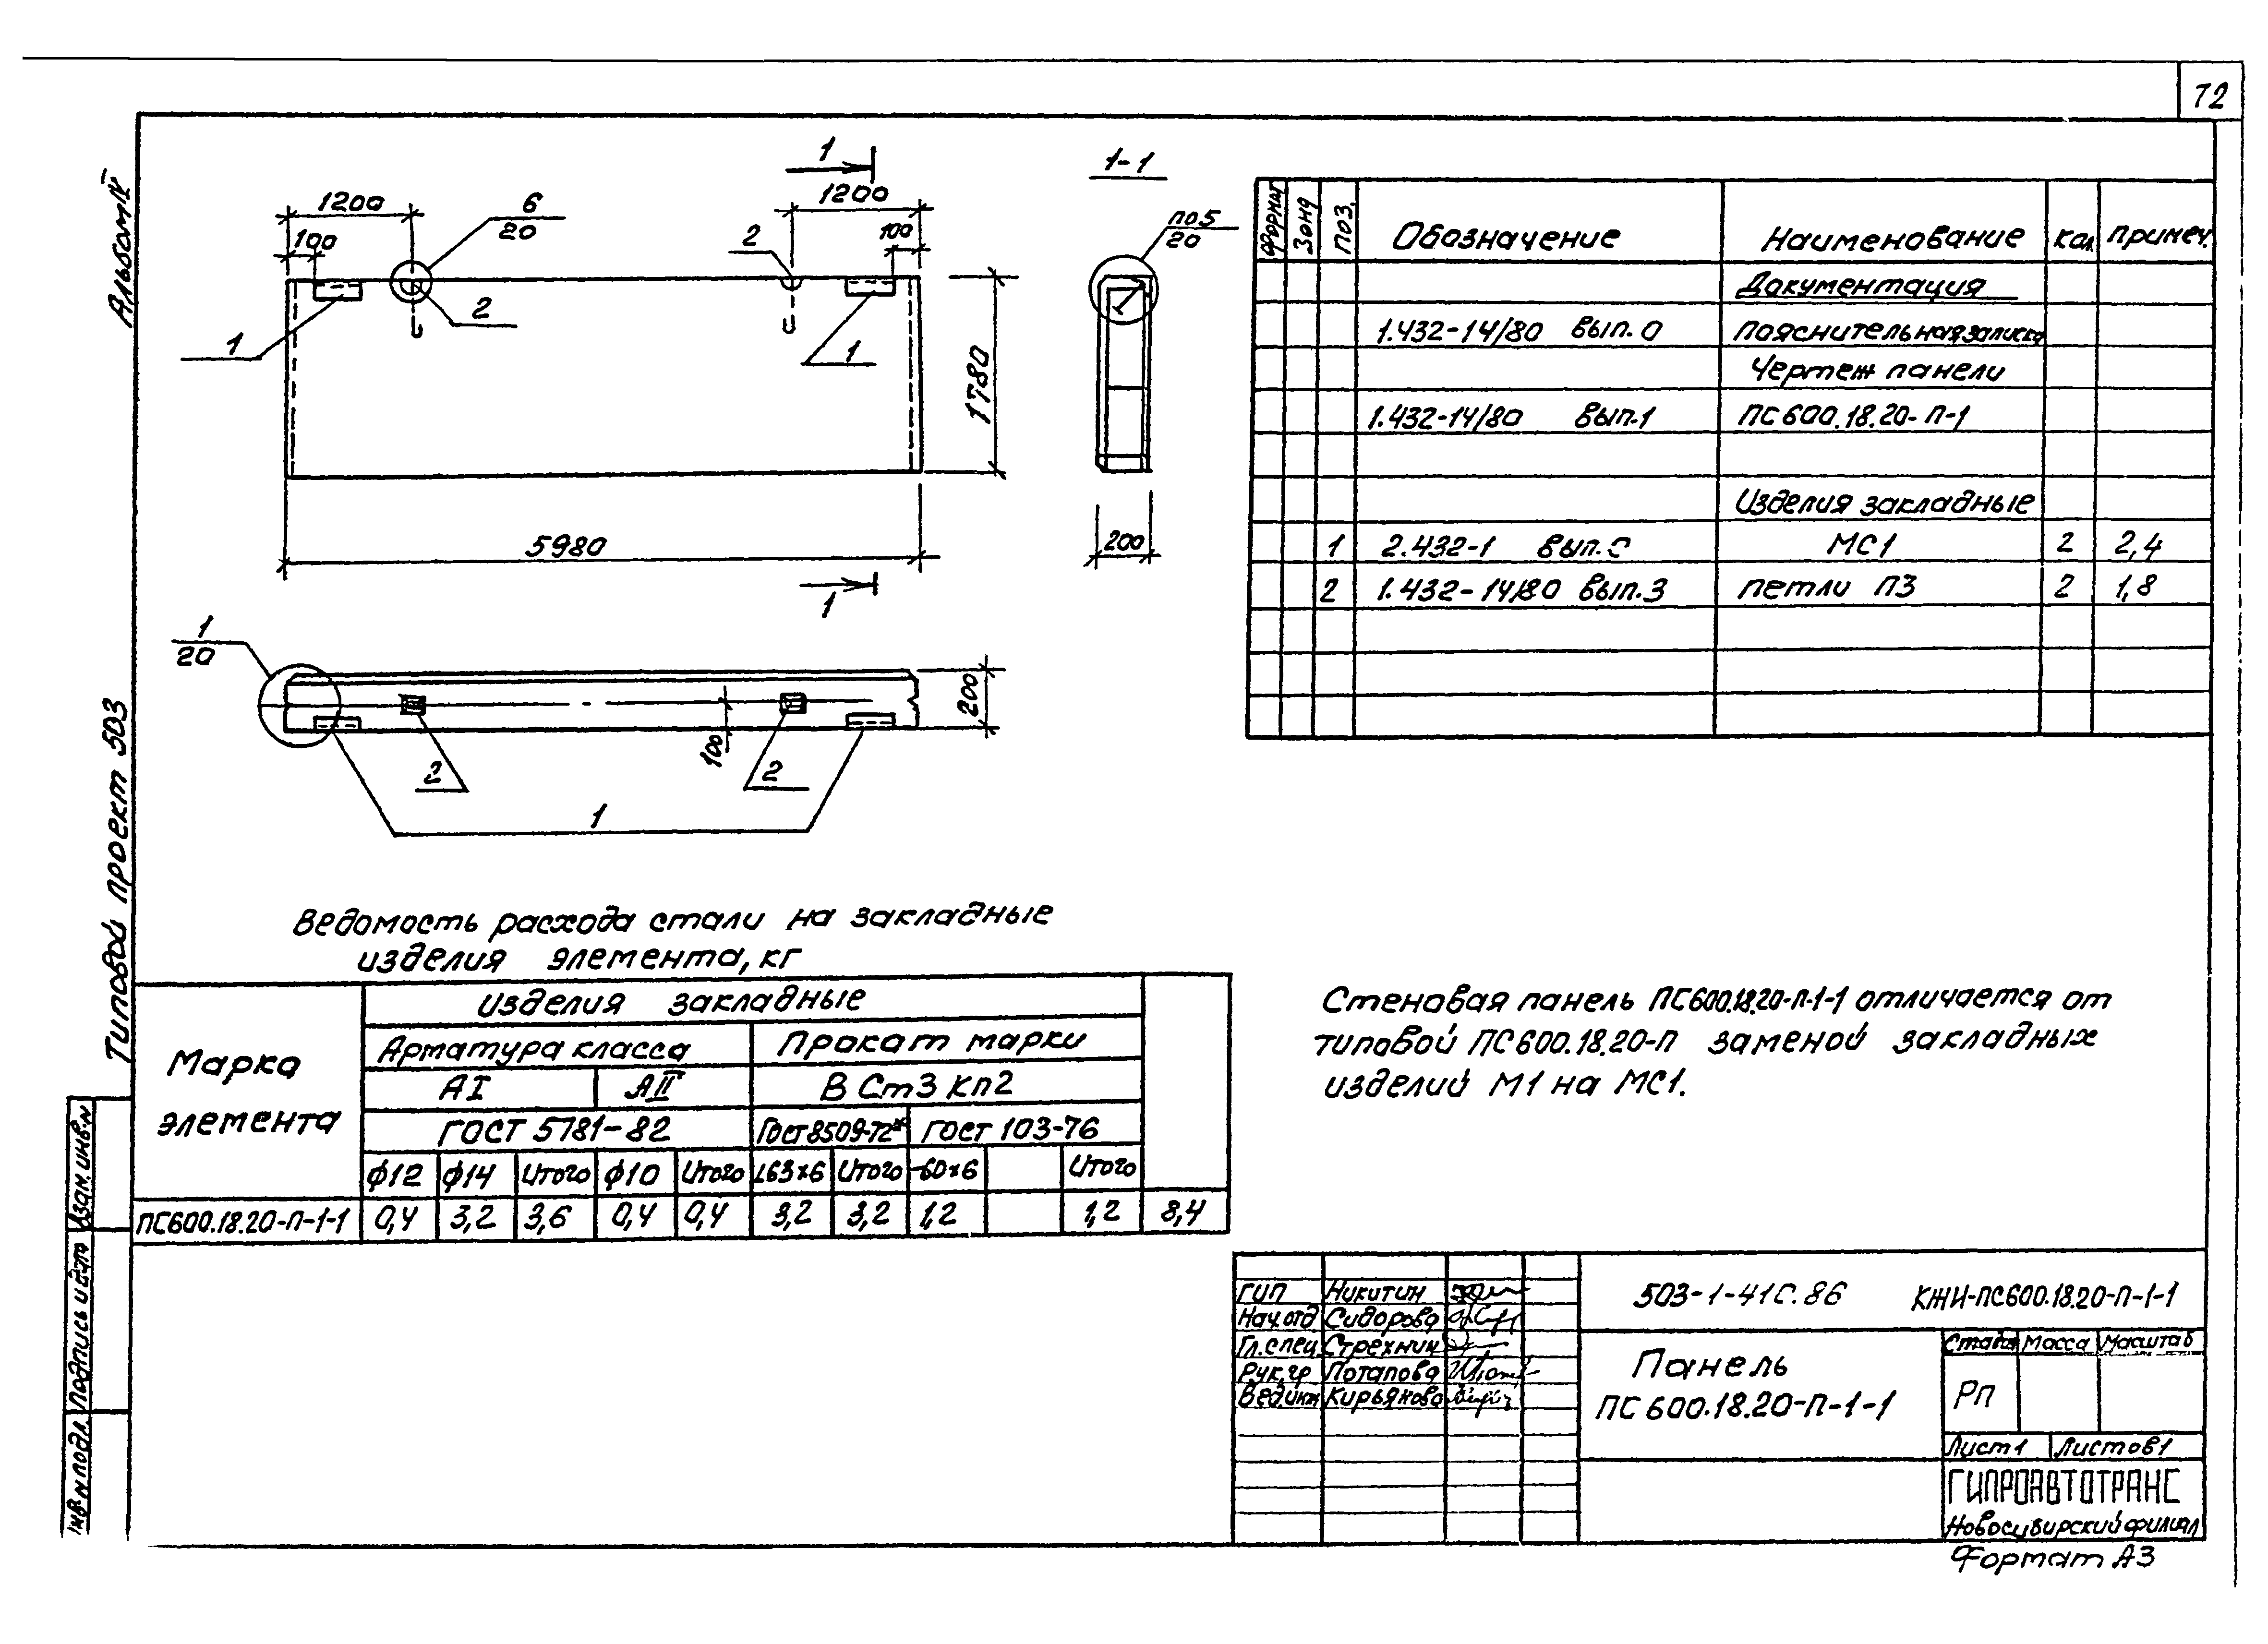 72
Альбом IV
Типовой проект 503
Взам. инв. N
Подпись и дата
Инв. N подл.
1
1-1
1200
6
20
1200
100
2
100
по 5
20
2
1
1
1780
5980
200
1
1
20
200
100
2
2
1
Формат Зона Поз. Обозначение Наименование Кол. Примеч.
Документация
1.432-14/80 вып. 0 Пояснительная записка
Чертеж панели
1.432-14/80 вып.1 ПС600.18.20-П-1
Изделия закладные
1 2.432-1 вып. МС1 2 2,4
2 1.432-14/80 вып.3 петли П3 2 1,8
Ведомость расхода стали на закладные
изделия элемента, кг
Марка
элемента
Изделия закладные
Арматура класса Прокат марки
АI АII В Ст3 Кп2
ГОСТ 5781-82 Гост 8509-72* ГОСТ 103-76
ф12 ф14 Итого ф10 Итого L63×6 Итого -60×6 Итого
ПС600.18.20-П-1-1 0,4 3,2 3,6 0,4 0,4 3,2 3,2 1,2 1,2 8,4
Стеновая панель ПС600.18.20-П-1-1 отличается от
типовой ПС600.18.20-П заменой закладных
изделий М1 на МС1.
ГИП Никитин
Нач.отд Сидорова
Гл.спец. Стрехнин
Рук.гр Потапова
Вед.инж Кирьянова
503-1-41С.86 КЖИ-ПС600.18.20-П-1-1
Панель
ПС 600.18.20-П-1-1
Стадия Масса Масштаб
РП
Лист 1 Листов 1
ГИПРОАВТОТРАНС
Новосибирский филиал
Формат А3